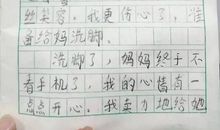 笑容。我更伤心了，准
备给妈洗脚。
洗脚了，妈妈终于不
看手机了，我的心情有一
点点开心。我卖力地给她